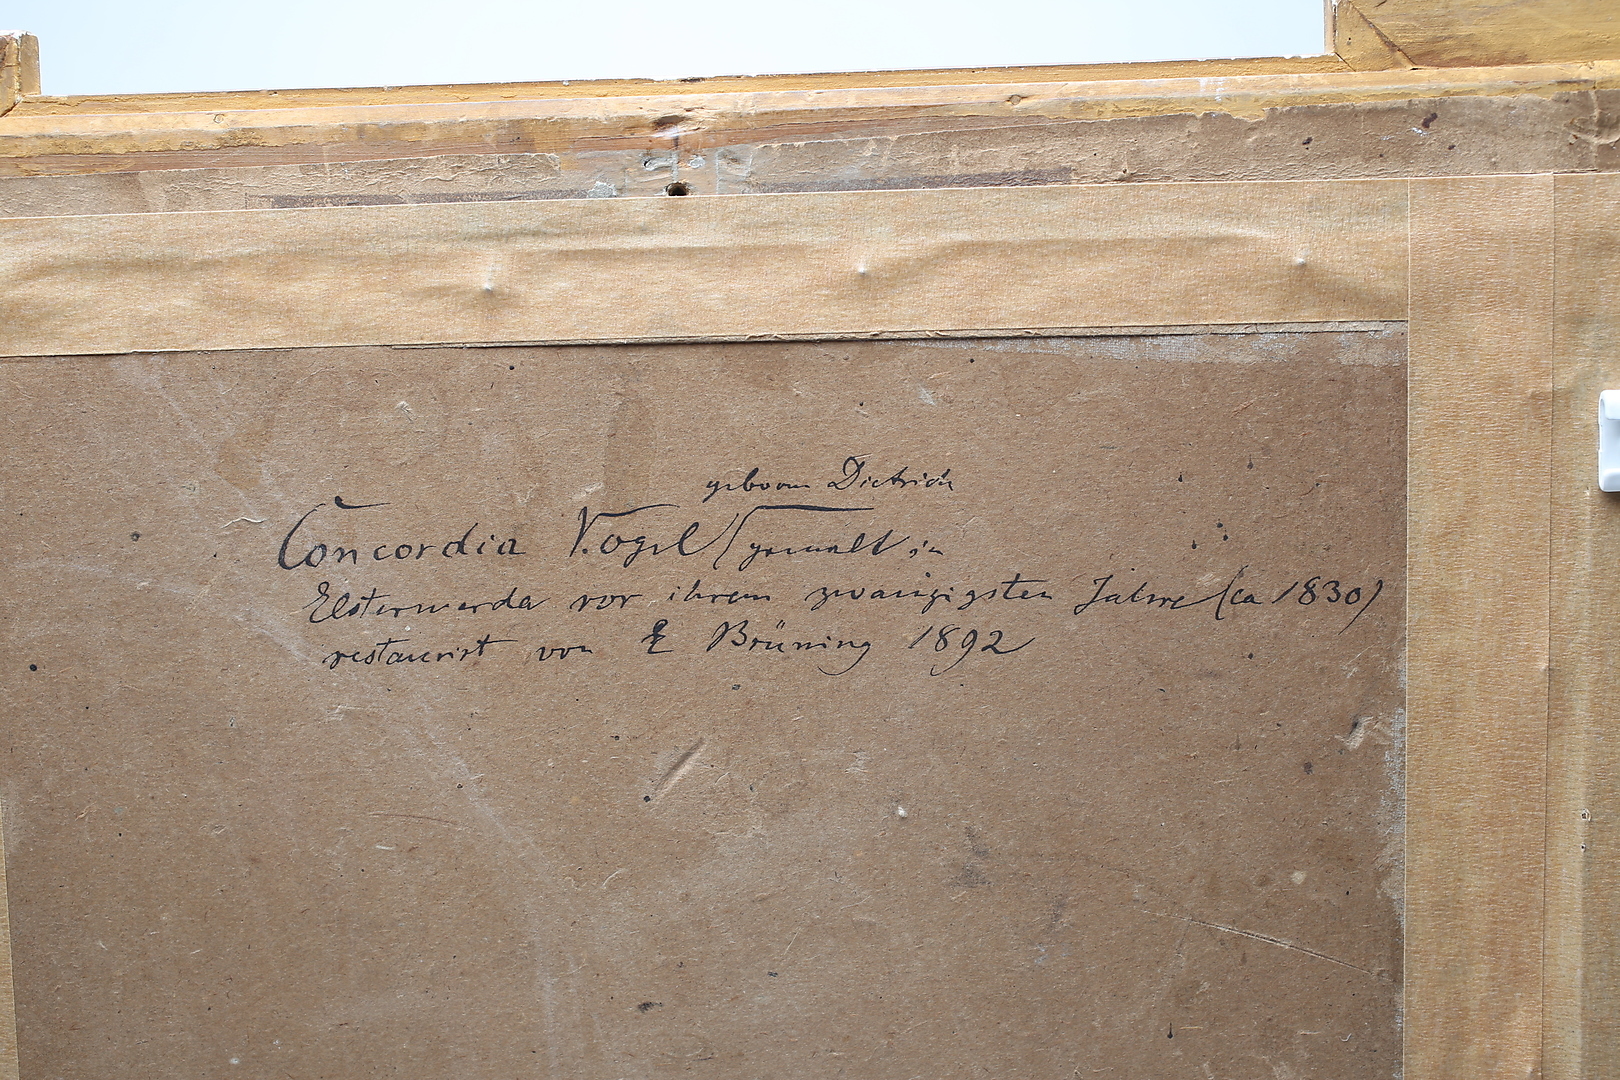 geboren Dietrich
Concordia Vogel / gemalt in
Elsterwerda vor ihrem zwanzigsten Jahre (ca 1830)
restaurirt von E Brüning 1892